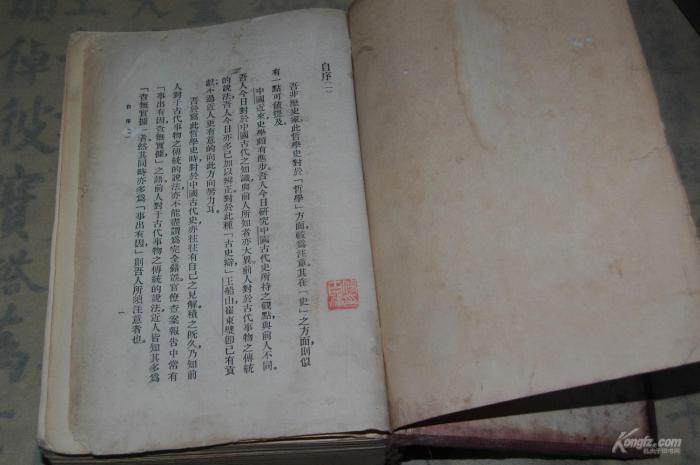 自序（一）
吾非歷史家，此哲學史對於「哲學」方面，較為注意。其在「史」之方面，則似
有一點可值提及。
中國近來史學頗有進步。吾人今日研究中國古代史所持之觀點與前人不同。
吾人今日對於中國古代之知識與前人所知者亦大異。前人對於古代事物之傳統
的說法，吾人今日亦多已加以辨正。對於此種「古史辯」王船山崔東壁即已有貢
獻，不過近人更有意的向此方向努力耳。
吾於寫此哲學史時，對於中國古代史，亦往往有自己之見解。積之既久，乃知前
人對于古代事物之傳統的說法，亦不能盡謂為完全錯誤。官僚查案報告中常有
「事出有因，查無實據」之語。前人對于古代事物之傳統的說法，近人皆知其多為
「查無實據」者。然其同時亦多為「事出有因」，則吾人所須注意者也。
自序（一）
一
倬彼寶塔萬
Kongfz.com
孔夫子旧书网